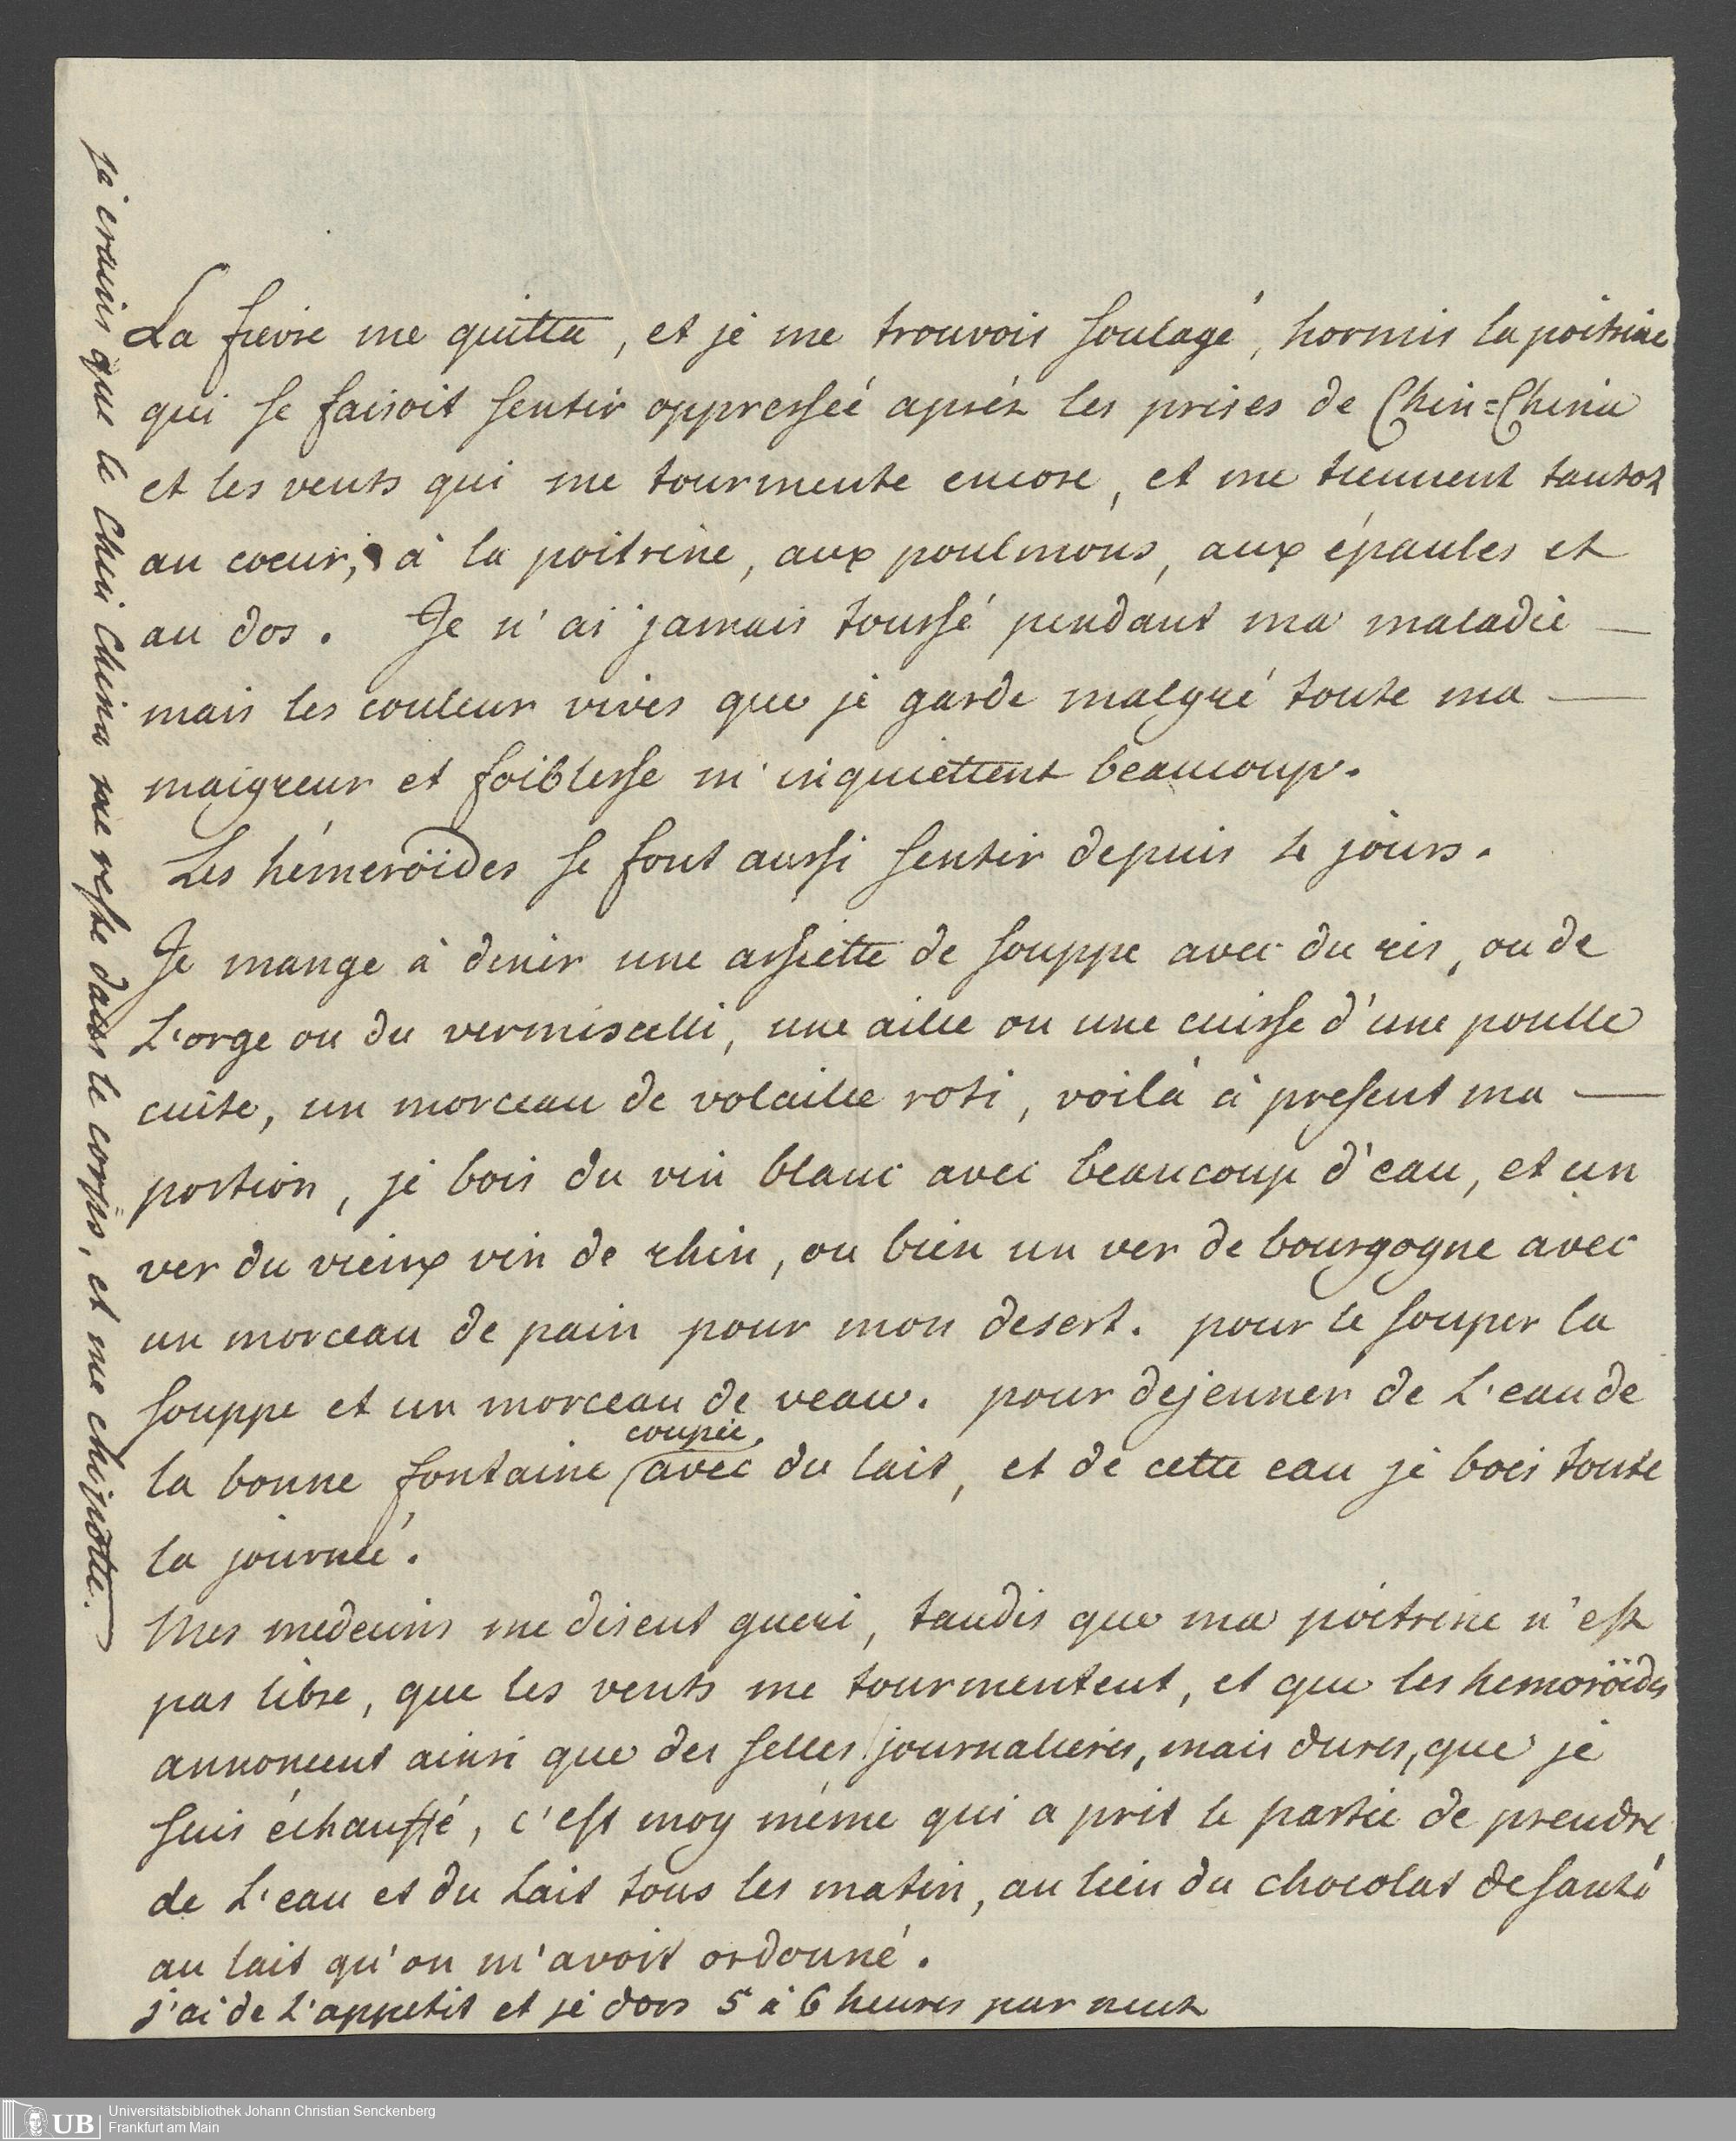 La fievre me quitta, et je me trouvois soulagé, hormis la poitrine
qui se faisoit sentir oppresseé aprés les prises de Chin=China
et les vents qui me tourmente encore, et me tiennent tantot
au coeur, à la poitrine, aux poulmons, aux épaules et
au dos. Je n'ai jamais toussé pendant ma maladie —
mais les couleur vives que je garde malgré toute ma —
maigreur et foiblesse m'inquiettent beaucoup.
Les hémeroïdes se font aussi sentir depuis 4 jours.
Je mange à diner une assiette de souppe avec du ris, ou de
L'orge ou du vermiscelli, une ailee ou une cuisse d'une poulle
cuite, un morceau de volaille roti, voilà à present ma —
portion, je bois du vin blanc avec beaucoup d'eau, et un
ver du vieux vin de rhin, ou bien un ver de bourgogne avec
un morceau de pain pour mon desert. pour le souper la
souppe et un morceau de veau. pour dejeuner de L'eau de
coupée
la bonne fontaine avec du lait, et de cette eau je bois toute
la journeé.
Mes medecins me disent gueri, tandis que ma poitrine n'est
pas libre, que les vents me tourmentent, et que les hemoroïdes
annoncent ainsi que des selles journalieres, mais dures, que je
suis échauffé, c'est moy même qui a prit le partie de prendre
de L'eau et du Lait tous les matin, au lieu du chocolat de santé
au lait qu'on m'avoit ordonné.
j'ai de L'appetit et je dors 5 à 6 heures par nuit
je crains que le Chin China me reste dans le corps, et me chipotte.
UB
Universitätsbibliothek Johann Christian Senckenberg
Frankfurt am Main